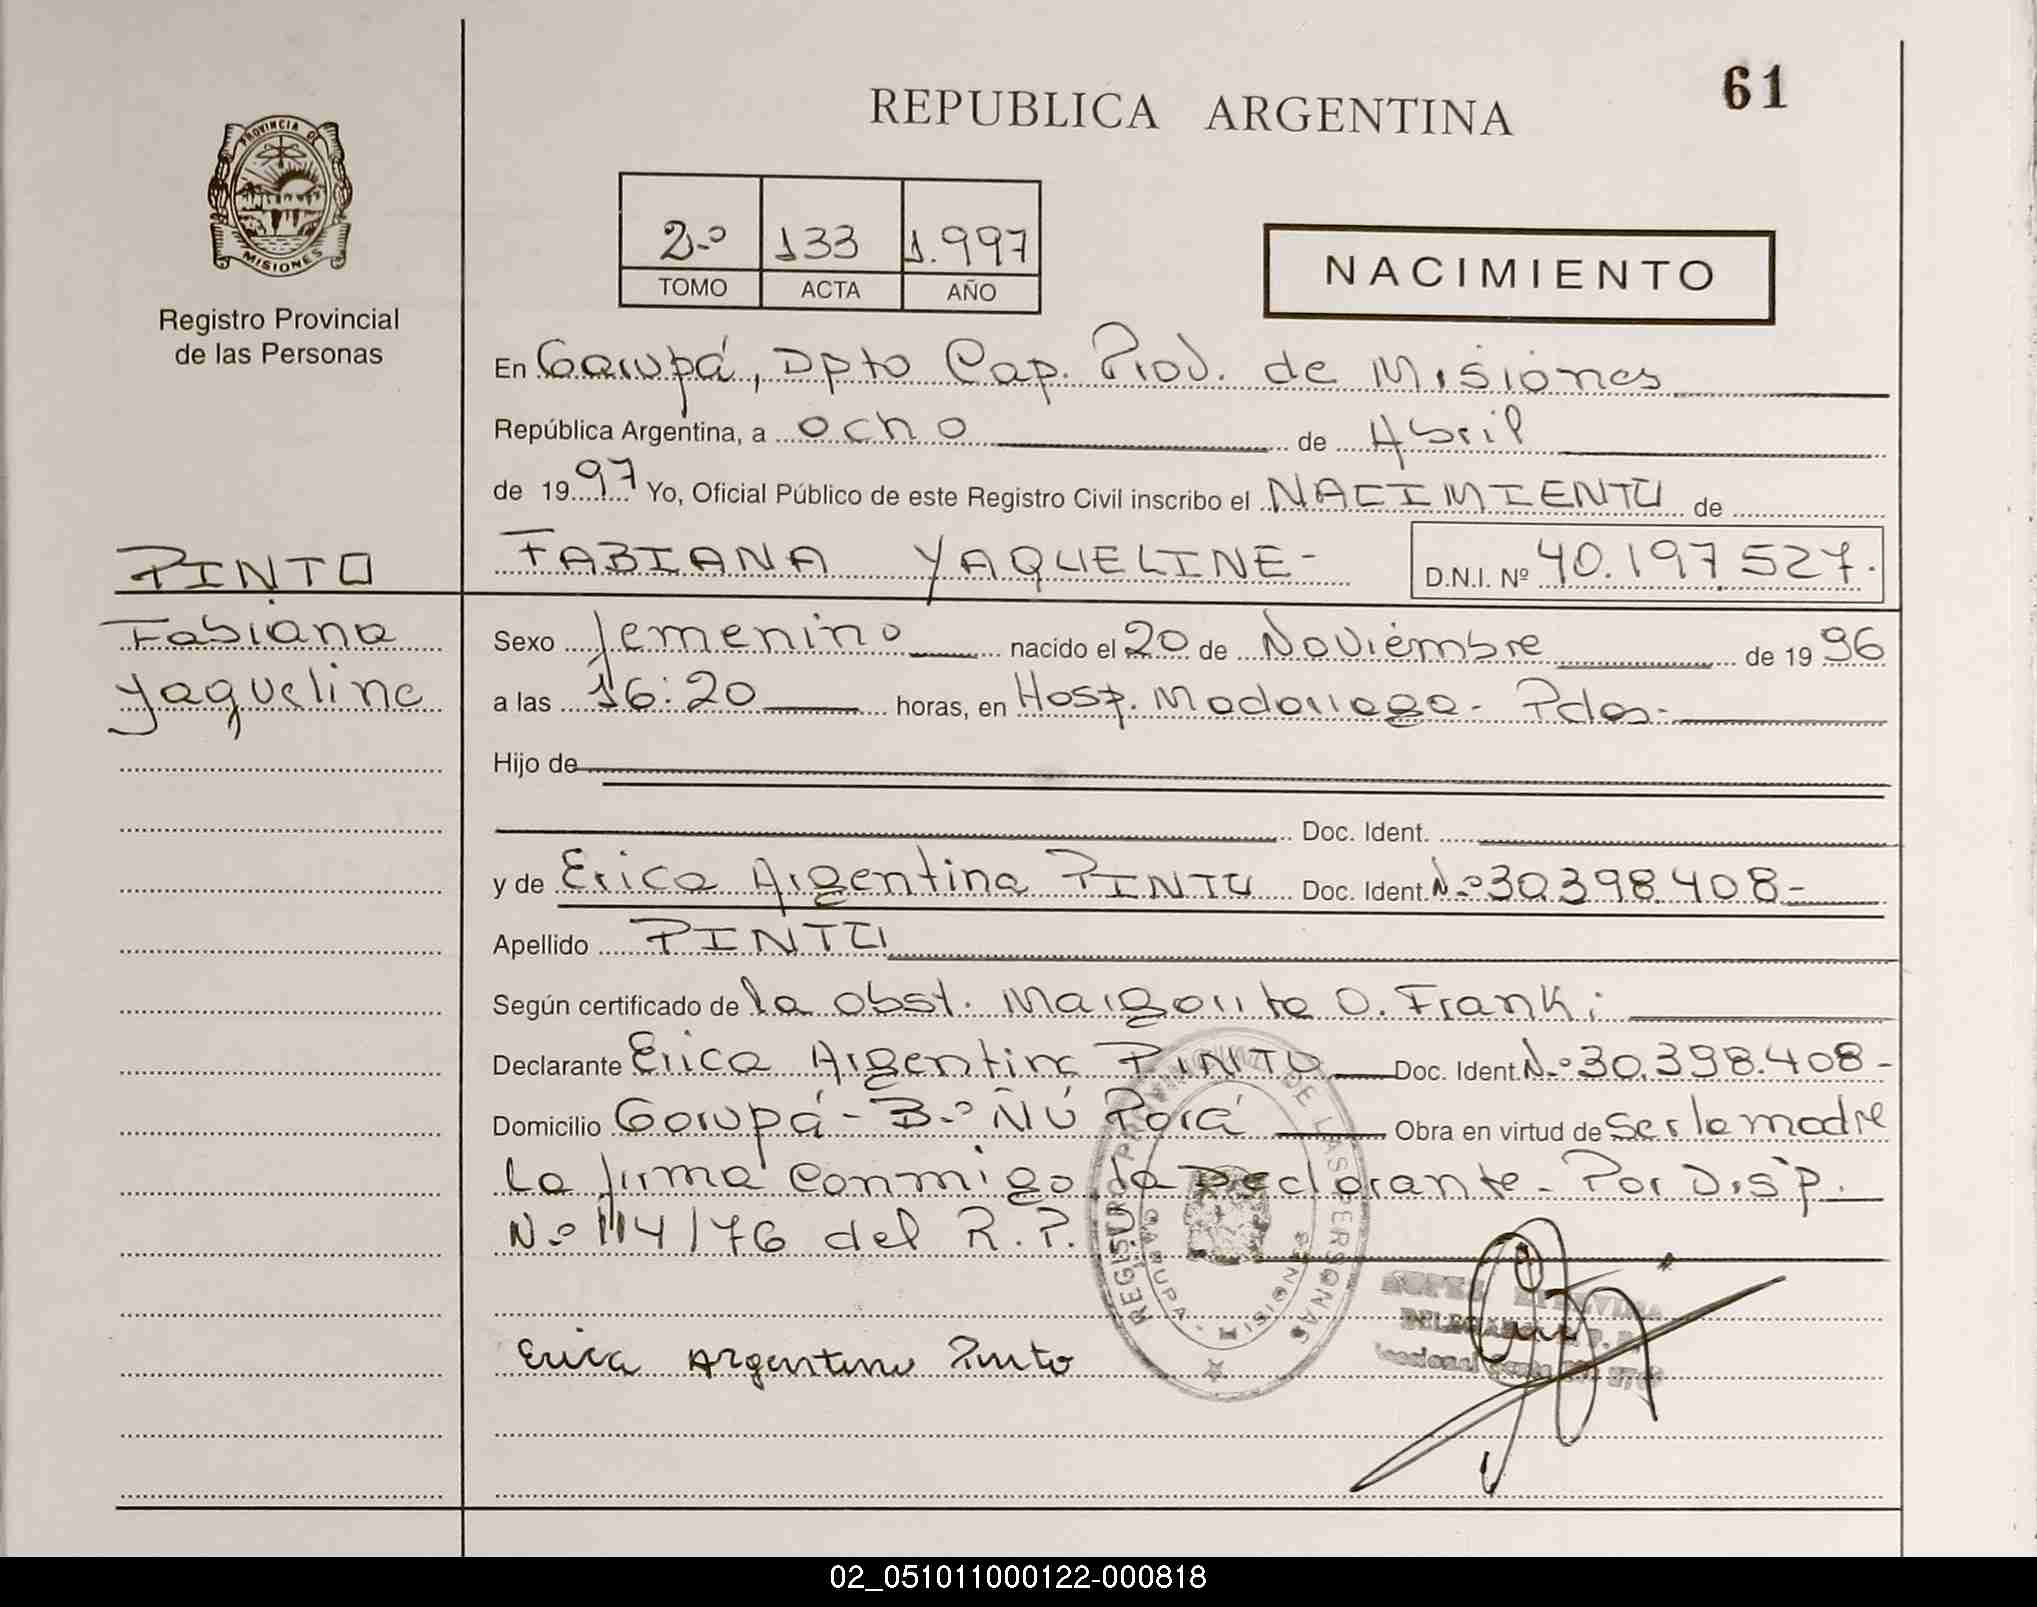 61
REPUBLICA ARGENTINA
PROVINCIA DE
MISIONES
Registro Provincial
de las Personas
2.º 133 1.997
TOMO ACTA AÑO
NACIMIENTO
En Garupá, Dpto Cap. Prov. de Misiones
República Argentina, a ocho de Abril
de 1997 Yo, Oficial Público de este Registro Civil inscribo el NACIMIENTO de
PINTO
Fabiana
Yaqueline
FABIANA YAQUELINE- D.N.I. Nº 40.197.527.
Sexo femenino nacido el 20 de Noviembre de 1996
a las 16:20 horas, en Hosp. Madariaga- Pdas-
Hijo de
Doc. Ident.
y de Erica Argentina PINTO Doc. Ident. N.º 30.398.408-
Apellido PINTO
Según certificado de la obst. Margarita O. Frank;
Declarante Erica Argentina PINTO Doc. Ident. N.º 30.398.408-
Domicilio Garupá - B.º ÑÚ Porá Obra en virtud de ser la madre
La firma conmigo la Declarante- Por Disp.
N.º 114/76 del R.P.
REGISTRO PROVINCIAL DE LAS PERSONAS
GARUPA MISIONES
Erica Argentina Pinto
02_051011000122-000818